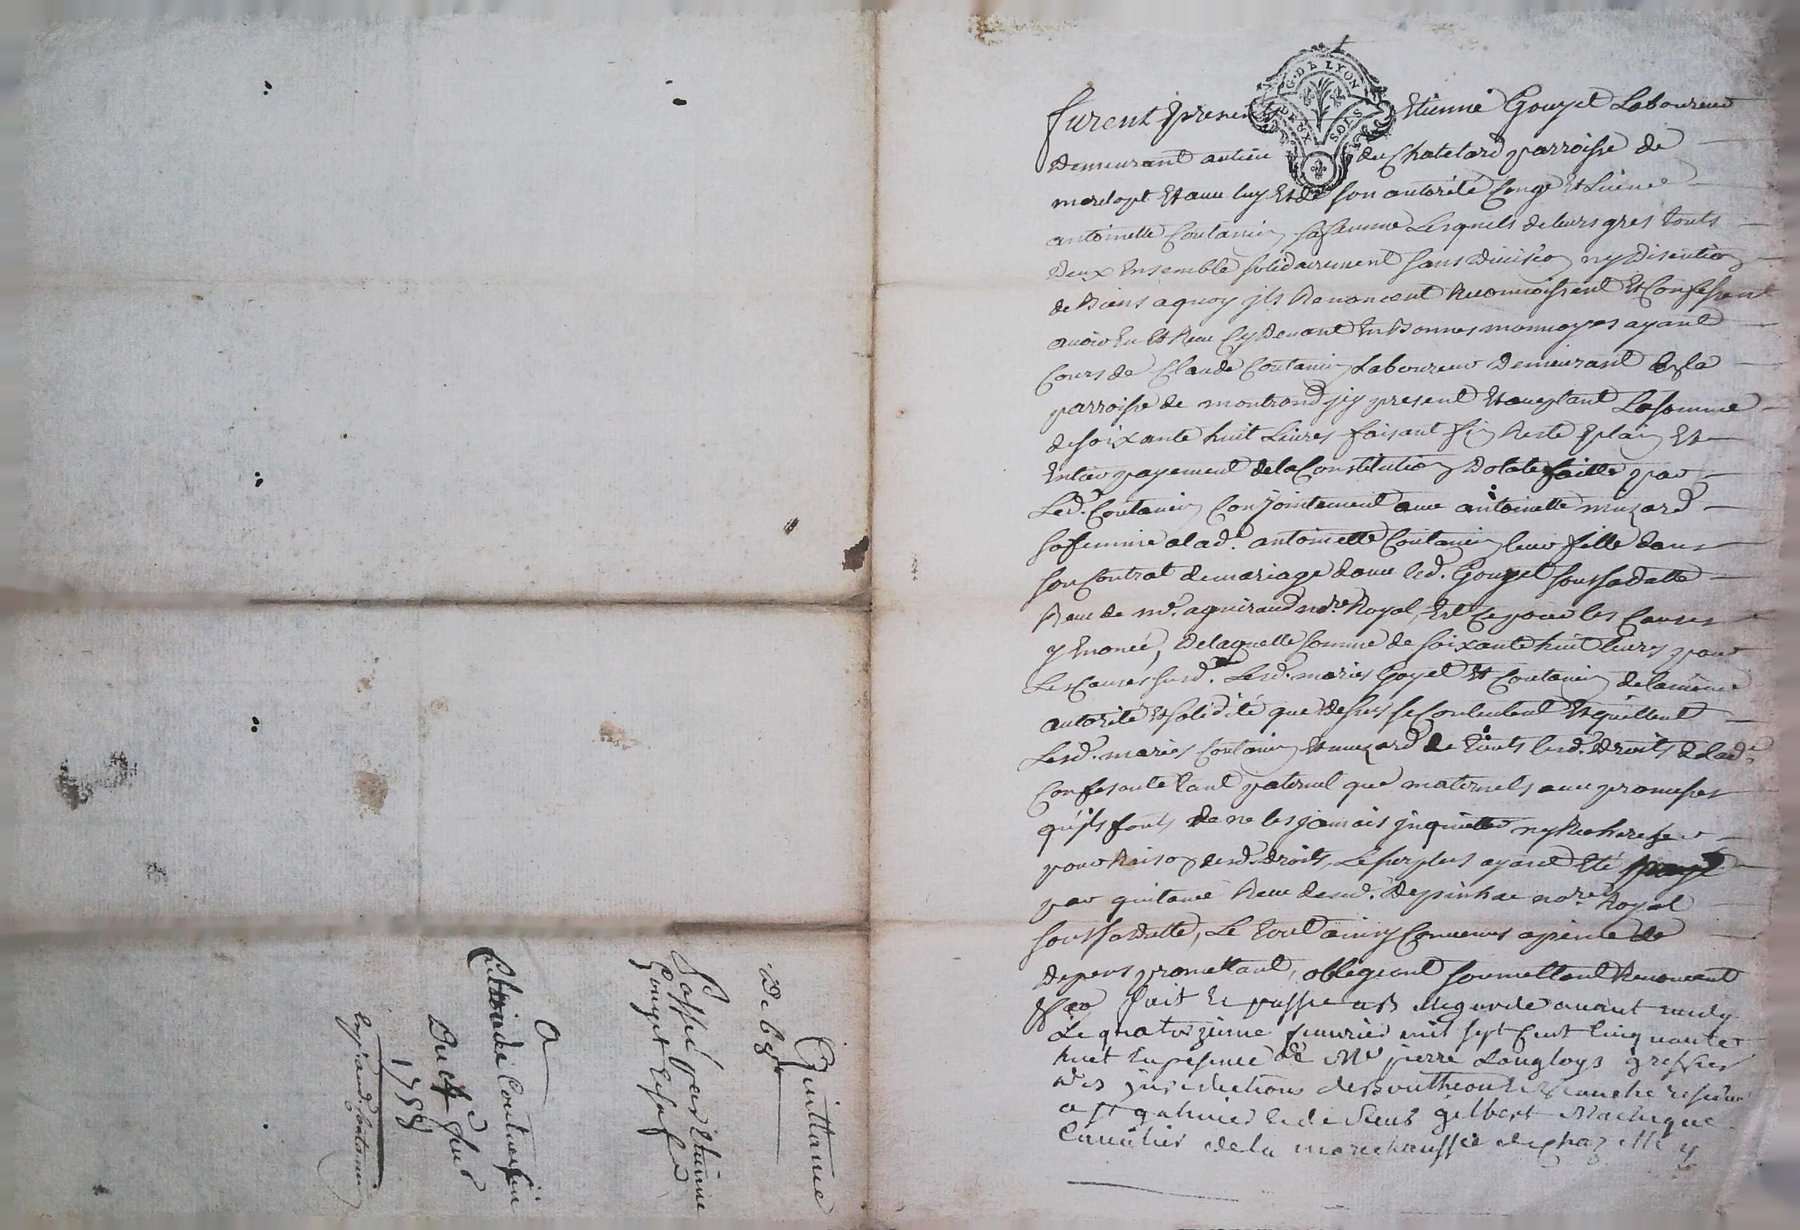 G. DE LYON
DEUX SOLS
furent presen Etienne Gouyet Laboureur
Demeurant au lieu du Chatelard parroisse de
et avec luy et de son autorité Congé et Licence
antoinette Coutanin sa femme Lesquels de leurs gres touts
Deux Ensemble solidairement sans Division ny Discution
de Biens a quoy ils Renoncent Reconnoissent et Confessent
avoir Eu et Receu Cy Devant En Bonnes monnoyes ayant
Cours de Claude Coutanin Laboureur Demeurant la
parroisse de montrond icy present et aceptant La somme
de soixante huit Livres faisant fin Reste Eplain et
Entier payement de la Constitution Dotale faitte par
Led. Coutanin Conjointement avec antoinette muzard
sa femme a lad. antoinette Coutanin leur fille dans
son Contrat de mariage avec led. Gouyet sous sa datte
Receu de me. nore. Royal, et Ce pour les Causes
y Enoncé, De laquelle somme de soixante huit livres pour
Les Causes susd. Lesd. maries Goyet et Coutanin de la meme
autorité et solidité que dessus se Contentent et quittent
Lesd. maries Coutanin et muzard de touts lesd. Droits de lad.
Confesante tant paternel que maternels avec promesses
qu'ils fonts de ne les jamais inquietter ny Rechercher
pour Raison desd. droits, Le surplus ayant été payé
par quitance Receu dud. Depinhac nore. Royal
sous sa Datte, Le tout ainsy Convenus a peine de
depens promettant, obligeant soumettant Renoncant
fait et passé avant midy
Le quatorzieme fevrier mil sept Cent Cinquante
huit En presence de Me pierre Langloys greffier
des jurisdictions de Bouthéon resident
a st galmier et de Sieur gilbert
Cavalier de la marechaussée de Chazelle
Quittance
De 68
Passé par Etienne
Gouyet Esa fe
a
Claude Coutanin
Du 14 fevr
1758